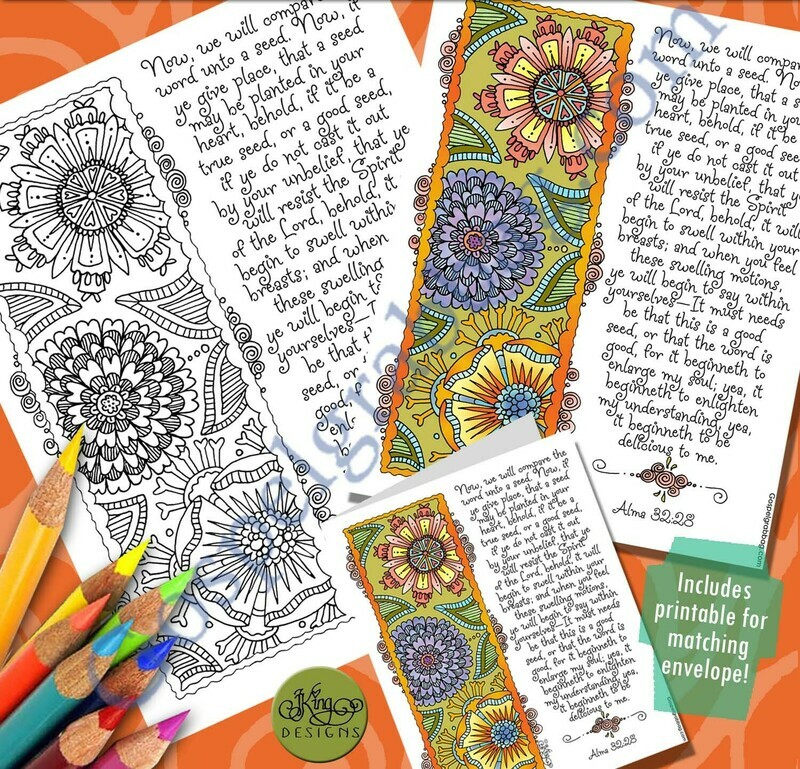 Now, we will
word unto a seed. Now, if
ye give place, that a seed
may be planted in your
heart, behold, if it be a
true seed, or a good seed,
if ye do not cast it out
by your unbelief, that ye
will resist the Spirit
of the Lord, behold, it
begin to swell
breasts; and when
these swelling
ye will begin to
yourselves—
be that
seed, or
good,
Now, we will compare
word unto a seed. Now,
ye give place, that a seed
may be planted in your
heart, behold, if it be
true seed, or a good seed,
if ye do not cast it out
by your unbelief, that ye
will resist the Spirit
of the Lord, behold, it will
begin to swell within your
breasts; and when you feel
these swelling motions,
ye will begin to say within
yourselves—It must needs
be that this is a good
seed, or that the word is
good, for it beginneth to
enlarge my soul; yea, it
beginneth to enlighten
my understanding; yea,
it beginneth to be
delicious to me.
Alma 32:28
Gospelgrabbag.com
Now, we will compare the
word unto a seed. Now, if
ye give place, that a seed
may be planted in your
heart, behold, if it be a
true seed, or a good seed,
if ye do not cast it out
by your unbelief, that ye
will resist the Spirit
of the Lord, behold, it will
begin to swell within your
breasts; and when you feel
these swelling motions,
ye will begin to say within
yourselves—It must needs
be that this is a good
seed, or that the word is
good, for it beginneth to
enlarge my soul; yea, it
beginneth to enlighten
my understanding; yea,
it beginneth to be
delicious to me.
Alma 32:28
Includes
printable for
matching
envelope!
JKing
DESIGNS